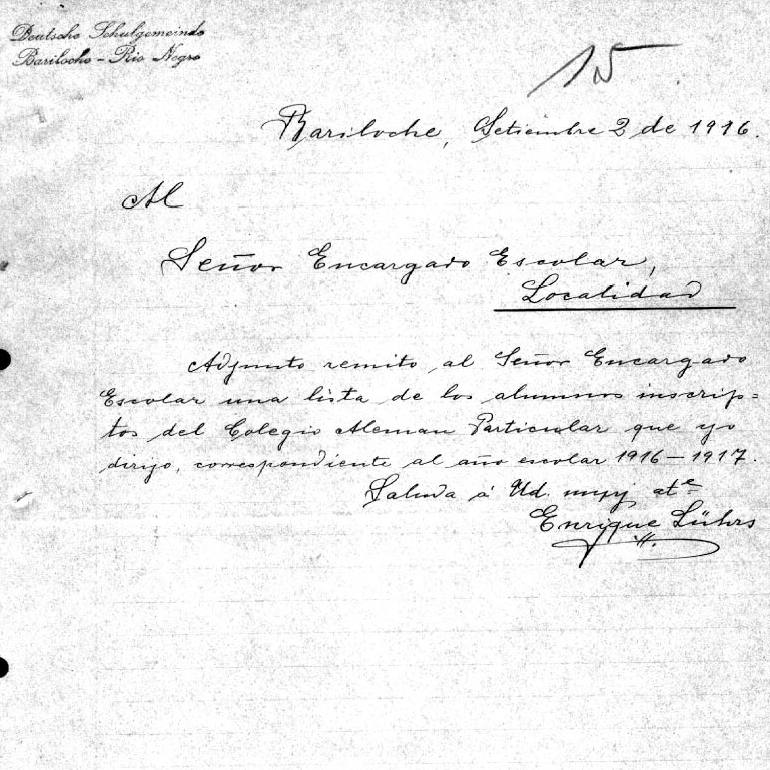 Deutsche Schulgemeinde
Bariloche - Rio Negro
15
Bariloche, Setiembre 2 de 1916.
Al
Señor Encargado Escolar,
Localidad
Adjunto remito al Señor Encargado
Escolar una lista de los alumnos inscrip=
tos del Colegio Aleman Particular que yo
dirijo, correspondiente al año escolar 1916-1917.
Saluda á Ud. muy ate
Enrique Lührs